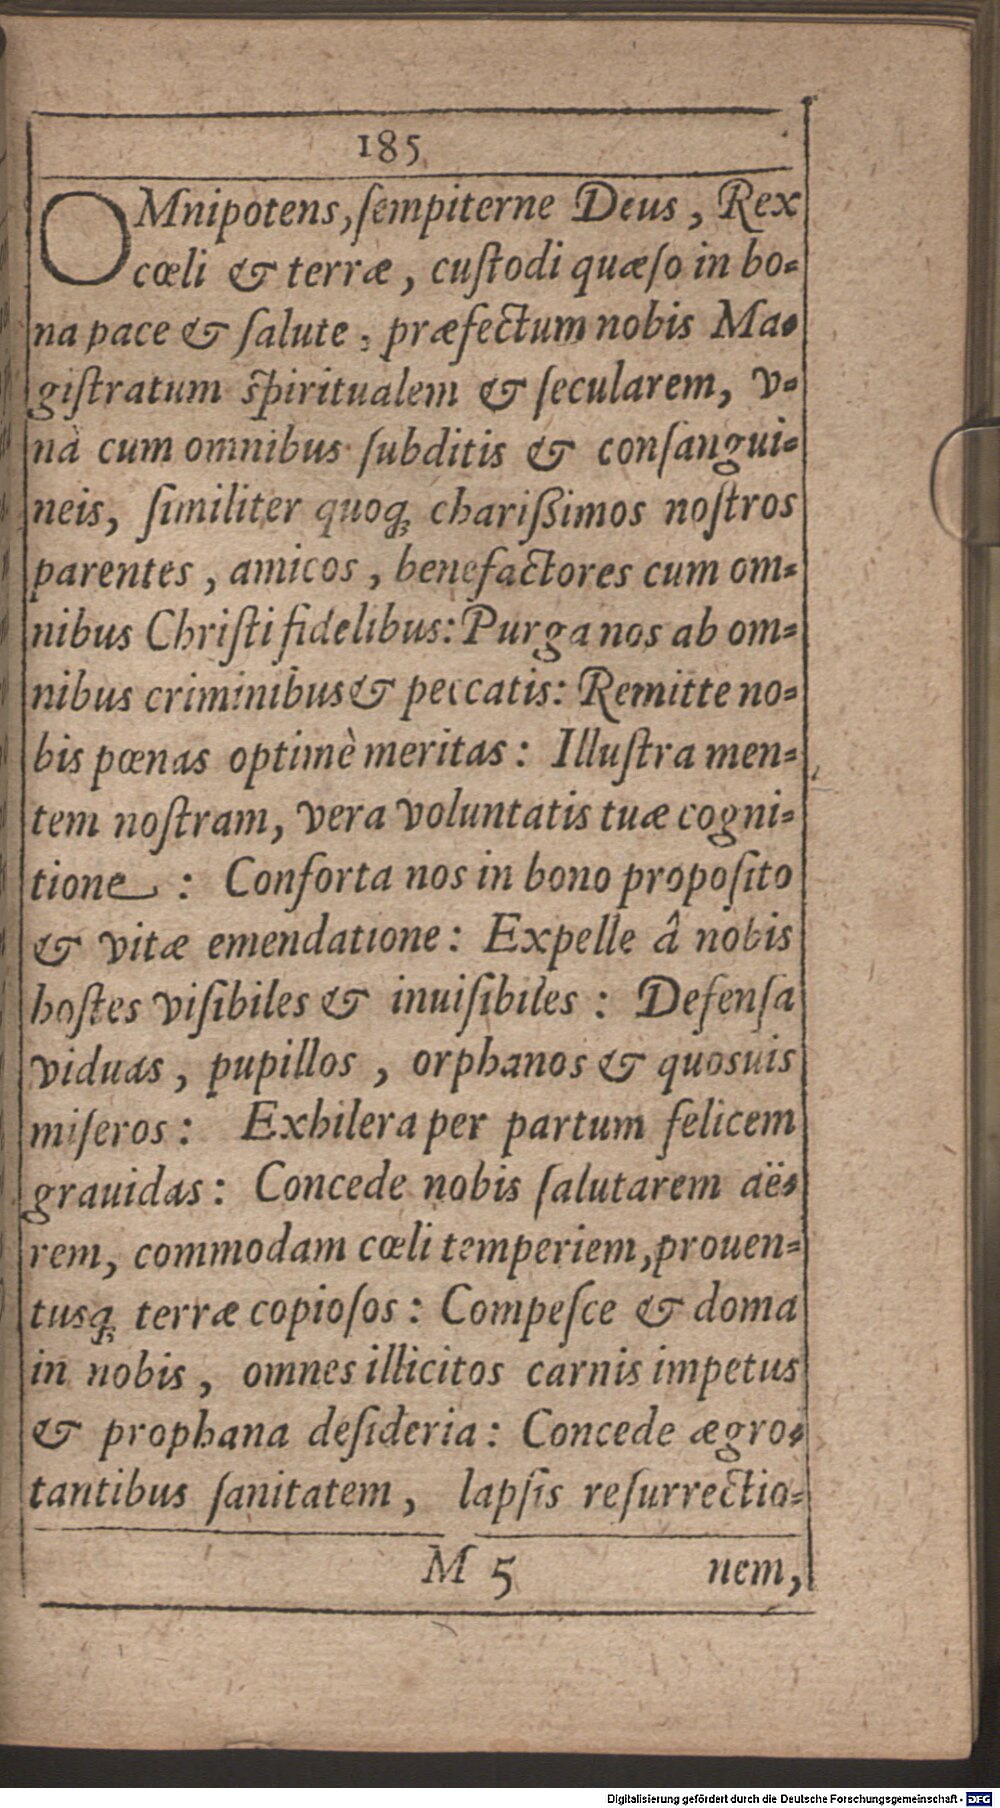 185
OMnipotens, ſempiterne Deus, Rex
cœli & terræ, cuſtodi quæſo in bo=
na pace & ſalute, præfectum nobis Ma=
giſtratum ſpiritualem & ſecularem, v=
nà cum omnibus ſubditis & conſangui=
neis, ſimiliter quoq; chariſſimos noſtros
parentes, amicos, benefactores cum om=
nibus Chriſti fidelibus: Purga nos ab om=
nibus criminibus & peccatis: Remitte no=
bis pœnas optimè meritas: Illuſtra men=
tem noſtram, vera voluntatis tuæ cogni=
tione: Conforta nos in bono propoſito
& vitæ emendatione: Expelle â nobis
hoſtes viſibiles & inuiſibiles: Defenſa
viduas, pupillos, orphanos & quosuis
miſeros: Exhilera per partum felicem
grauidas: Concede nobis ſalutarem aë=
rem, commodam cœli temperiem, prouen=
tusq; terræ copioſos: Compeſce & doma
in nobis, omnes illicitos carnis impetus
& prophana deſideria: Concede ægro=
tantibus ſanitatem, lapſis reſurrectio=
M 5 nem,
Digitalisierung gefördert durch die Deutsche Forschungsgemeinschaft - DFG